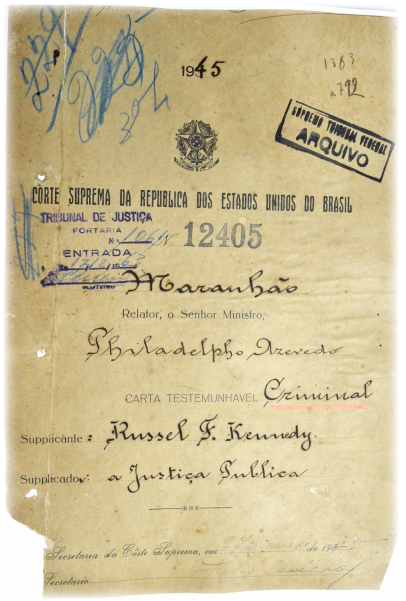 1945
1383
a 792
SUPREMO TRIBUNAL FEDERAL
ARQUIVO
CÔRTE SUPREMA DA REPUBLICA DOS ESTADOS UNIDOS DO BRASIL
TRIBUNAL DE JUSTIÇA
PORTARIA
N.
12405
ENTRADA
Maranhão
Relator, o Senhor Ministro,
Philadelpho Azevedo
CARTA TESTEMUNHAVEL Criminal
Supplicante: Russel F. Kennedy.
Supplicado: a Justiça Publica
Secretaria da Côrte Suprema, em de 194
Secretario